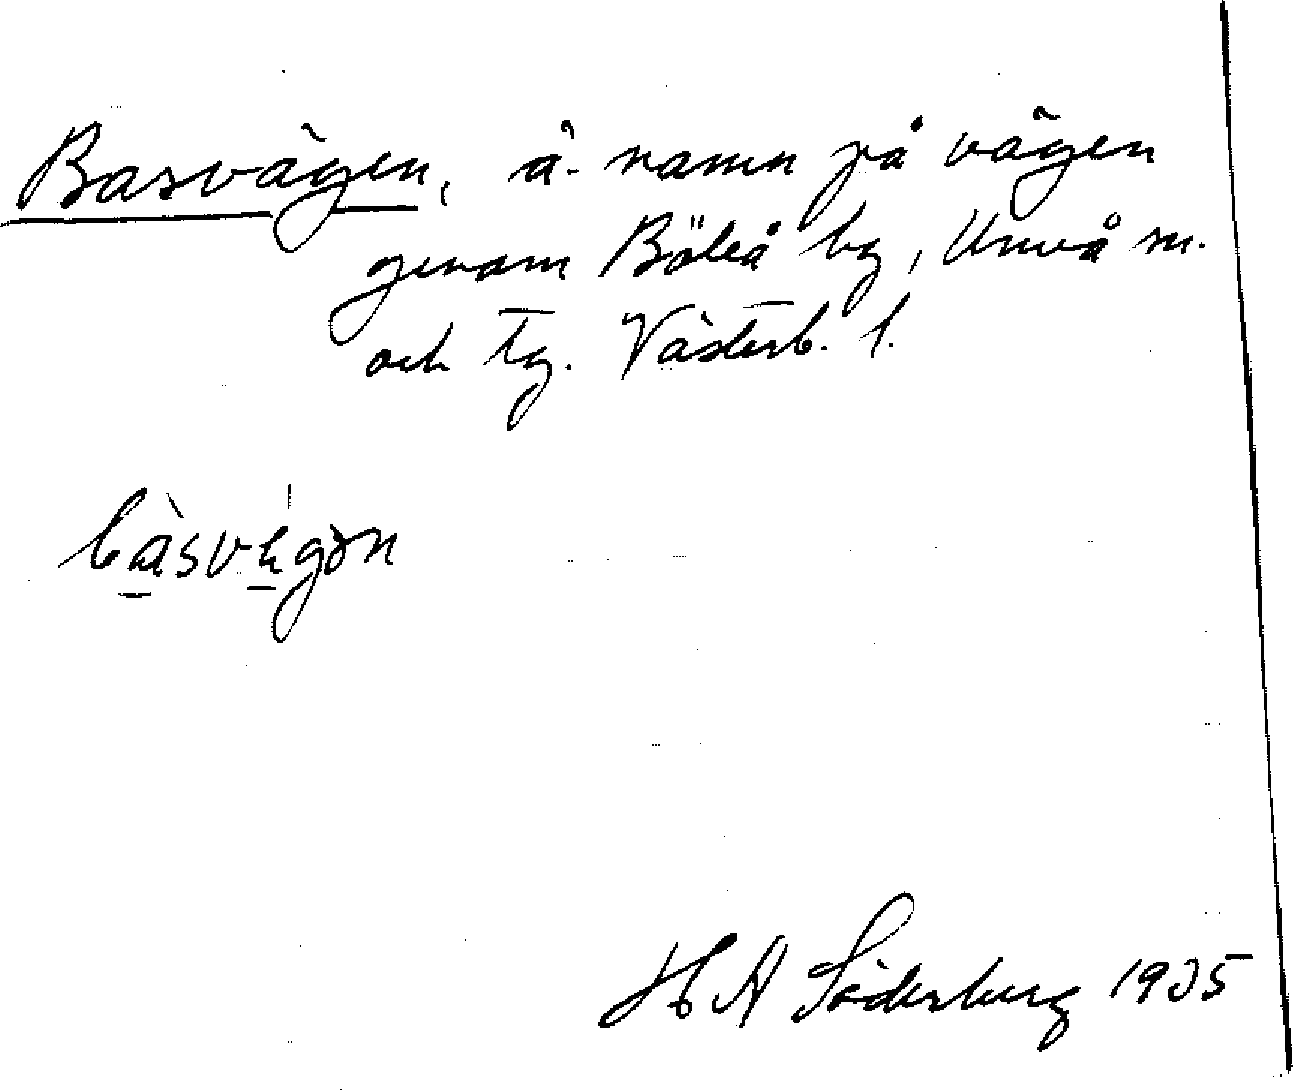 Basvägen, ä. namn på vägen
genom Böleå by, Umeå sn.
och tg. Västerb. l.
bàsvégən
H A Söderberg 1935